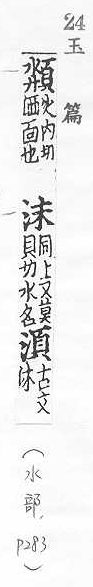 24
玉篇
頮火內切洒面也 沬同上又莫貝切水名湏古文沬
(水部, P283)